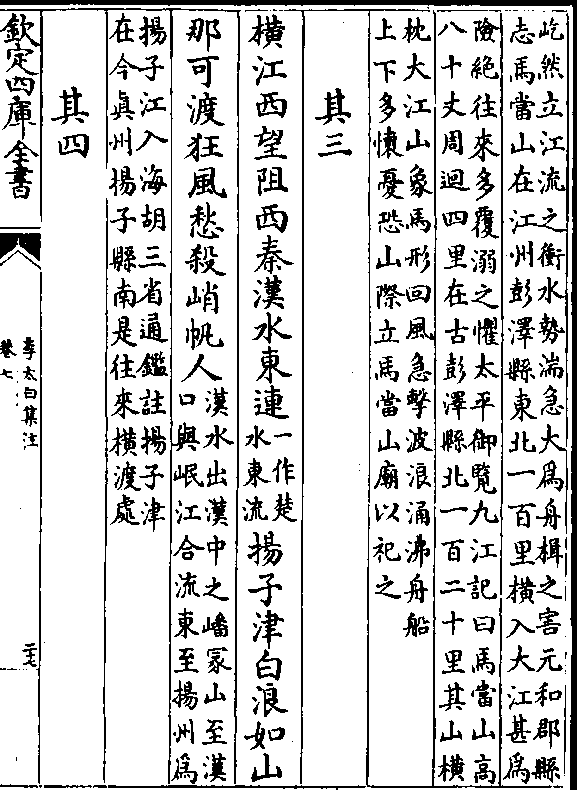 屹然立江流之衝水勢湍急大為舟楫之害元和郡縣
志馬當山在江州彭澤縣東北一百里橫入大江甚為
險絕往來多覆溺之懼太平御覽九江記曰馬當山高
八十丈周迴四里在古彭澤縣北一百二十里其山橫
枕大江山象馬形回風急擊波浪涌沸舟船
上下多懷憂恐山際立馬當山廟以祀之
其三
橫江西望阻西秦漢水東連一作楚水東流揚子津白浪如山
那可渡狂風愁殺峭帆人漢水出漢中之嶓冢山至漢口與岷江合流東至揚州為
揚子江入海胡三省通鑑註揚子津
在今真州揚子縣南是往來橫渡處
其四
欽定四庫全書
李太白集注
卷七
二十七